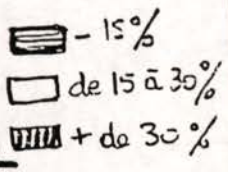 - 15%
de 15 à 30%
+ de 30 %